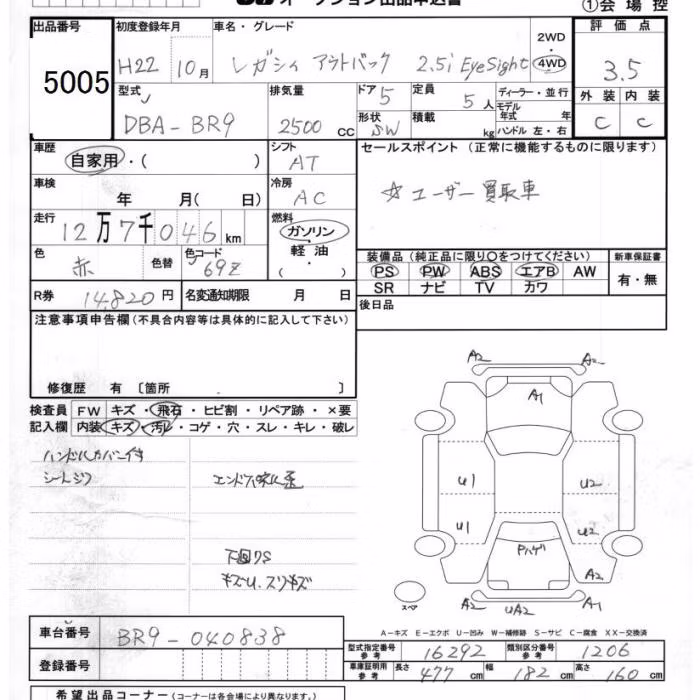 オークション出品申込書
①会場控
出品番号 初度登録年月 車名・グレード 2WD 評価点
5005 H22 10月 レガシィ アウトバック 2.5i EyeSight 4WD 3.5
型式 排気量 ドア 5 定員 5人 ディーラー・並行 外装 内装
DBA-BR9 2500 CC 形状 SW 積載 kg モデル年式 年 C C
ハンドル 左・右
車歴 シフト セールスポイント (正常に機能するものに限ります)
自家用・( ) AT
車検 冷房 ☆ユーザー買取車
年 月(日) AC
走行 燃料
12万7千046km ガソリン
色 色替 色コード 軽油 装備品 (純正品に限り○をつけてください) 新車保証書
赤 69Z ・( ) PS PW ABS エアB AW 有・無
R券 14,820円 名変通知期限 月 日 SR ナビ TV カワ
注意事項申告欄 (不具合内容等は具体的に記入して下さい) 後日品
修復歴 有 〔箇所 〕
検査員 FW キズ・飛石・ヒビ割・リペア跡・×要
記入欄 内装 キズ・汚レ・コゲ・穴・スレ・キレ・破レ
ハンドルカバー付
シートシワ
下回りS
キズU.スリキズ
A2 A2
A1
U1 U2
U1 U2
Pハゲ
A2
A2 UA2 A2
スペア
A-キズ E-エクボ U-凹み W-補修跡 S-サビ C-腐食 XX-交換済
車台番号 BR9-040838
登録番号
型式指定番号 参考 16292 類別区分番号 参考 1206
車庫証明用 参考 長さ 477cm 幅 182cm 高さ 160cm
希望出品コーナー (コーナーは各会場により異なります。)